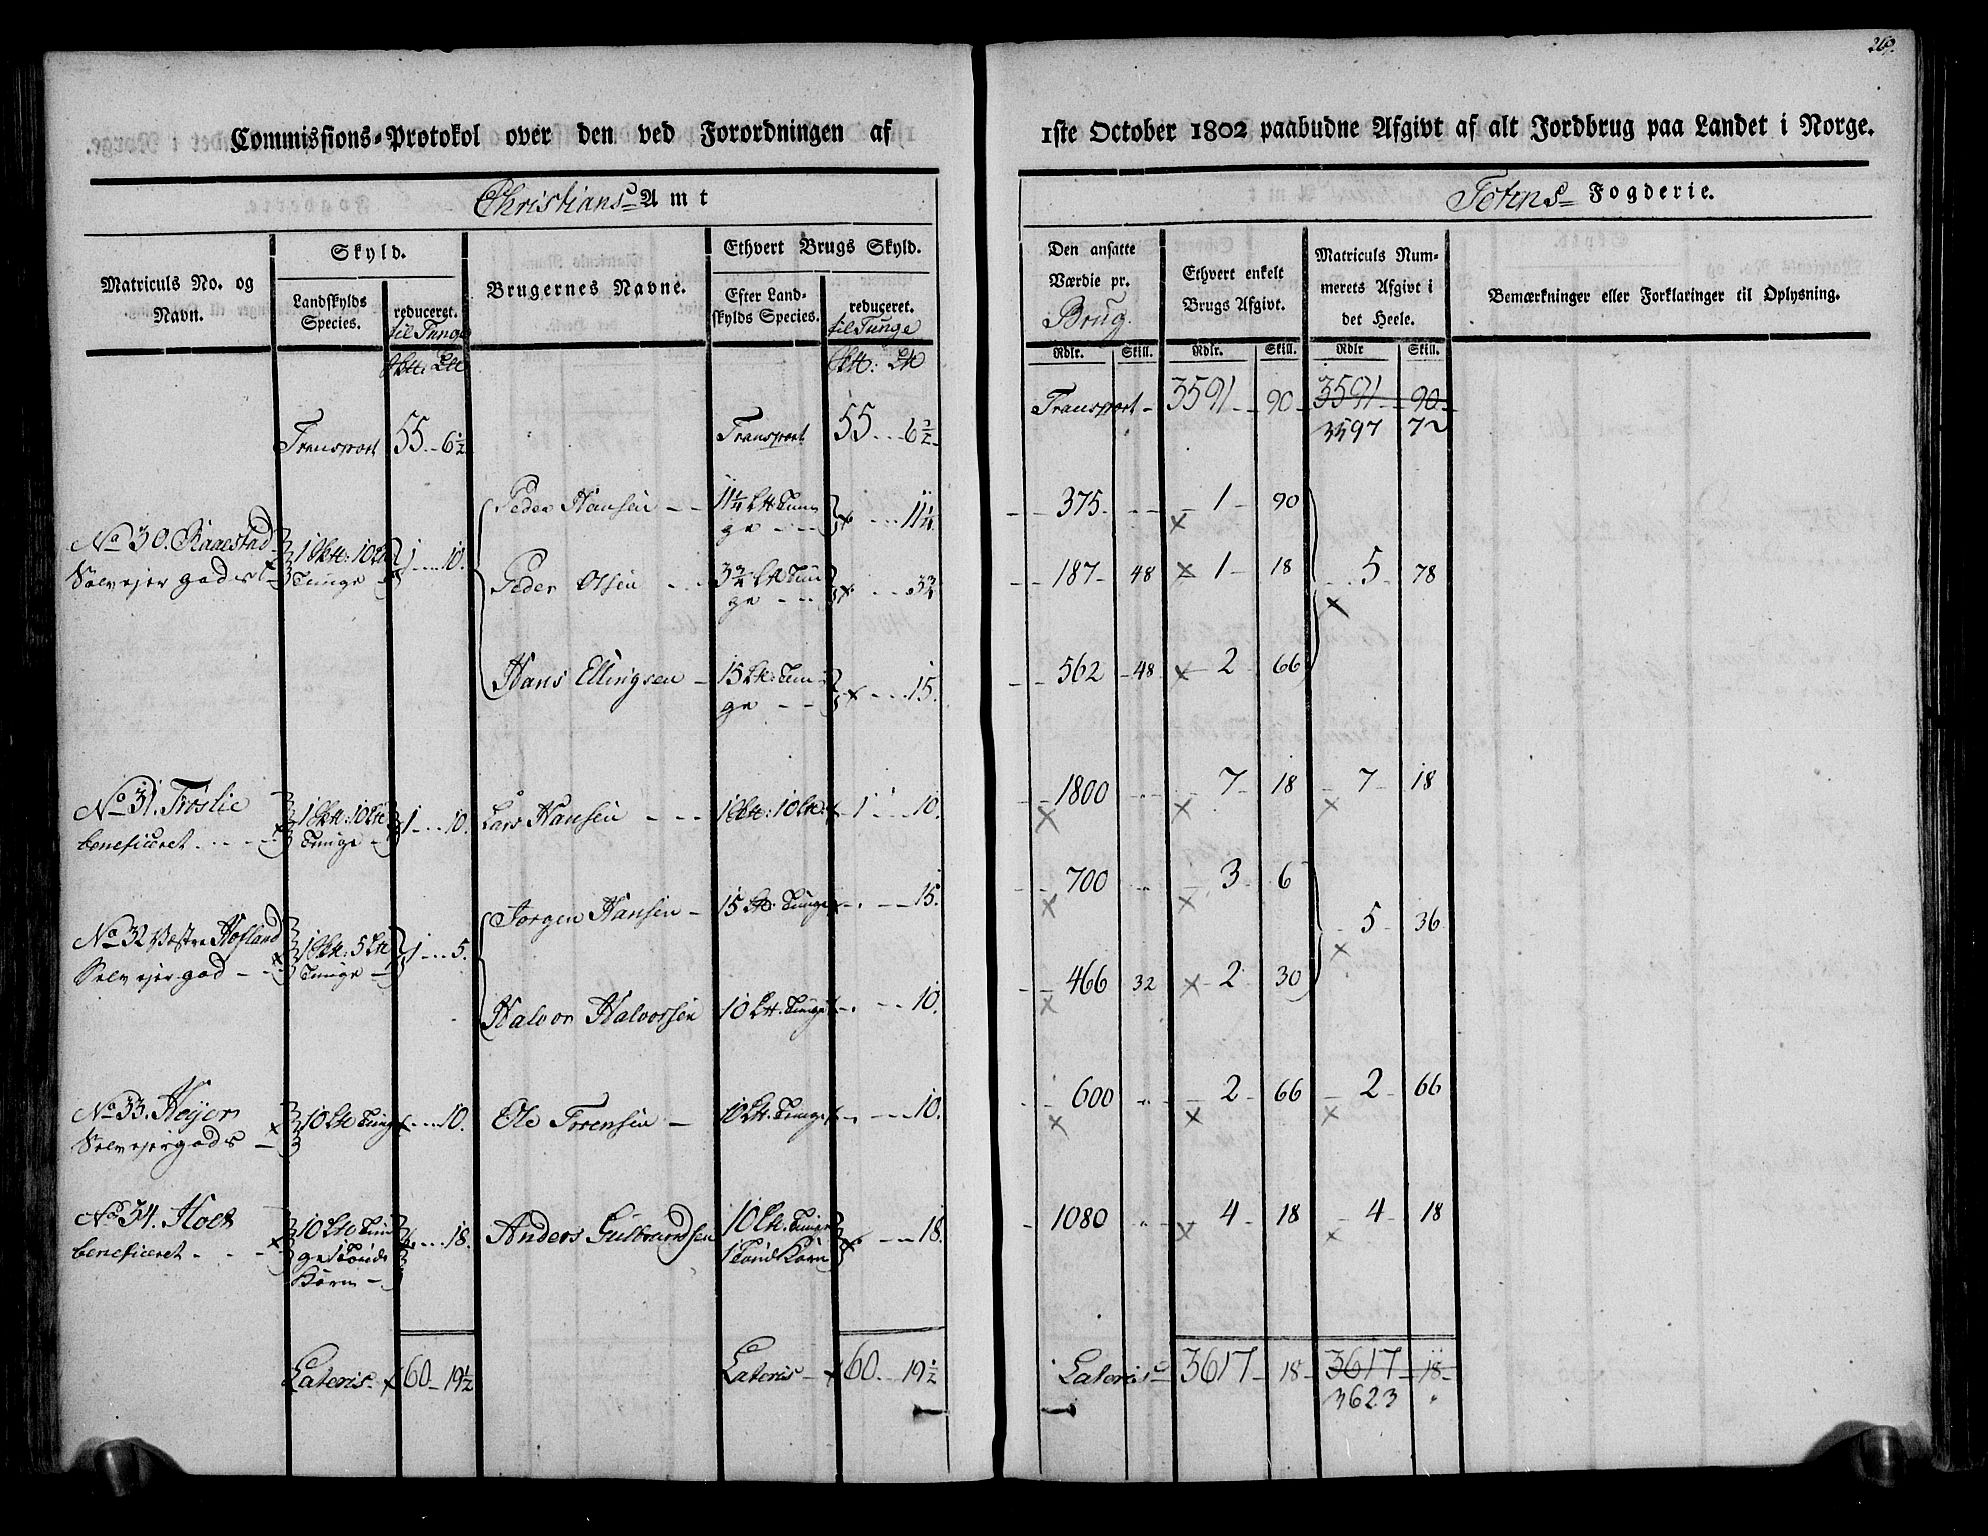 269.
Commissions-Protokol over den ved Forordningen af 1ste October 1802 paabudne Afgivt af alt Jordbrug paa Landet i Norge.
Christians Amt
Totens Fogderie.
Matriculs No. og Navn.
Skyld.
Landskylds Species.
reduceret. til Tunge
Brugernes Navne.
Ethvert Brugs Skyld.
Efter Landskylds Species.
reduceret. til Tunge
Den ansatte Værdie pr. Brug.
Ethvert enkelt Brugs Afgivt.
Matriculs Nummerets Afgivt i det Heele.
Bemærkninger eller Forklaringer til Oplysning.
Rdlr. Skill. Rdlr. Skill. Rdlr Skill.
Transport 55 - 6½ Transport 55 - 6½ Transport - 3591 - 90 - 3591 - 90
3597 72
Peder Hansen - - 11¼ Lt Tunge - - 11¼ 375 - 1 - 90
No 30. Raaestad Selvejer gods 1 10 Tunge 1 - 10.
Peder Olsen - - 3¾ Lt Tunge - - 3¾ 187 - 48 1 18 5 - 78
Hans Ellingsen - 15 Lt: Tunge - - 15. 562 - 48 2 66
No 31. Trøslie beneficeret 10 Tunge 1 - 10. Lars Hansen - - - 10 1 - 10. 1800 7 18 7 - 18
Jørgen Hansen - 15 Lt: Tunge - 15. 700 3 6
No 32 Vestre Hofland Selvejergod - 5 Tunge 1 - 5. 5 - 36
Halvor Halvorsen 10 Lt. Tunge - 10. 466 32 2 30
No 33. Høyen Selvejergods - 10 Tunge - 10. Ole Torensen - 10 Lt. Tunge - 10. 600 2 66 2 - 66
No 34. Holt beneficeret 10 Tunge 1 Tønde Korn - 18. Anders Gulbrandsen 10 Lt. Tunge 1 Tønd Korn - 18. 1080 4 18 4 - 18
Lateris 60 - 19½ Lateris - 60 - 19½ Lateris 3617 - 18 - 3617 - 18 -
3623